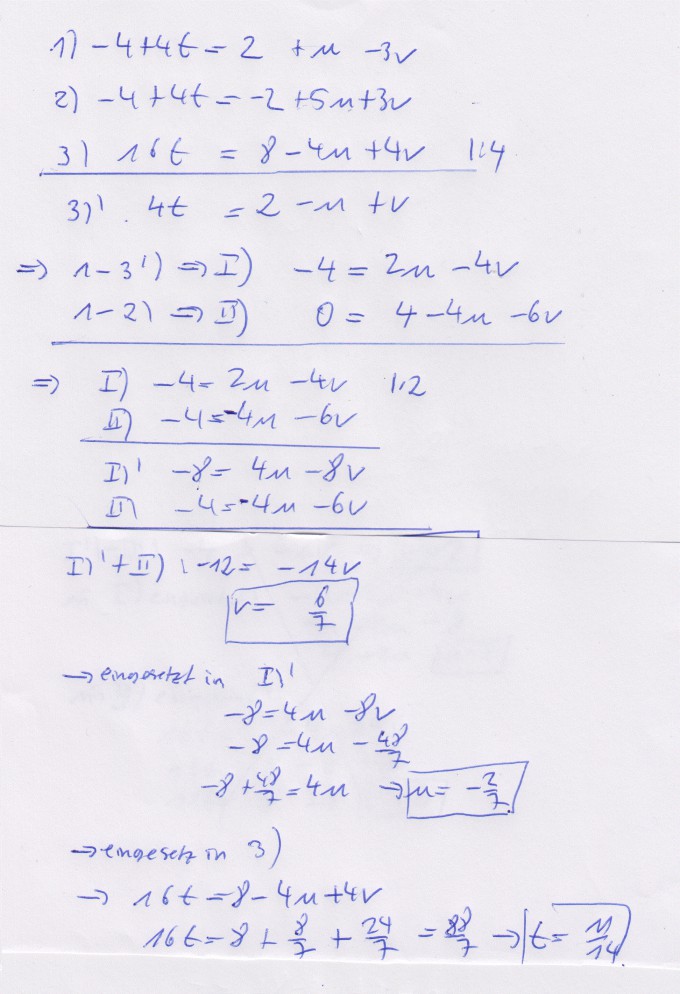 1) -4+4t = 2 +u -3v
2) -4+4t = -2+5u+3v
3) 16t = 8-4u+4v |:4
3)' 4t = 2 -u +v
=> 1-3') => I) -4 = 2u -4v
1-2) => II) 0 = 4-4u -6v
=> I) -4 = 2u -4v |:2
II) -4 = -4u -6v
I)' -8 = 4u -8v
II) -4 = -4u -6v
I)'+II) -12 = -14v
v = 6/7
→ eingesetzt in I)'
-8 = 4u -8v
-8 = 4u - 48/7
-8 + 48/7 = 4u → u = -2/7
→ eingesetz in 3)
→ 16t = 8-4u+4v
16t = 8 + 8/7 + 24/7 = 88/7 → t = 11/14